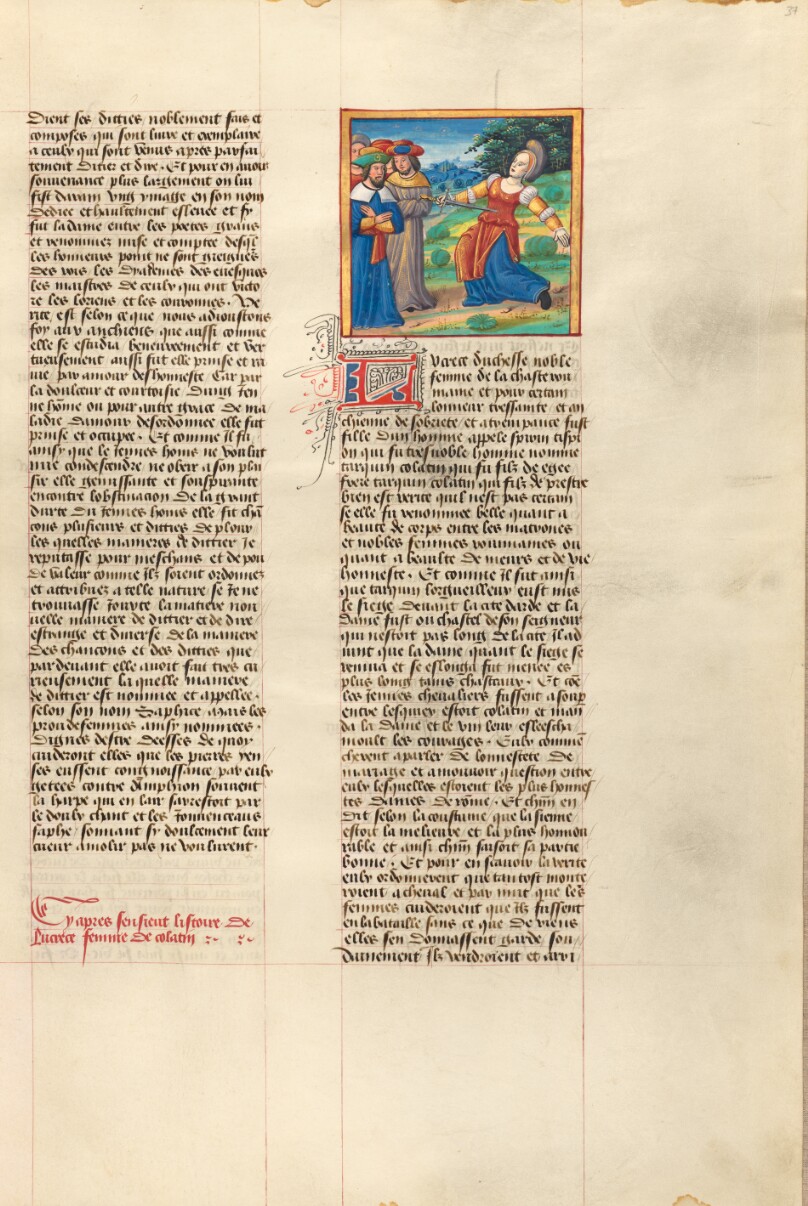 37
Dient ses ditties noblement fais et
composes qui sont livre et exemplaire
a ceulx qui sont venus apres parfai
tement dittier et dire. Et pour en avoir
souvenance plus largement on lui
fist darain ung ymage en son nom
dediee et haultement eslevee et sy
fut la dame entre les poetes grans
et renommez mise et comptee desqlz
les honneurs point ne sont greigneurs
des rois les dyademes des evesques
les maistres de ceulx qui ont victo
re les loriens et les couronnes. Ve
rite est selon ce que nous adioustons
foy aux anchiens que aussi comme
elle se estudia beneureement et ver
tueusement aussi fut elle prinse et ra
vie par amour deshonneste Car par
la doulceur et courtoisie dung Jen
ne hõme ou pour autre grace de ma
ladie damour desordonnee elle fut
prinse et occupee. Et comme il fu
ainsy que le Jennes homs ne voulut
mie condescendre ne obeir a son plai
sir elle gemissante et souspirante
encontre lobstinacion de la grant
durte du Jennes homs elle fist chã
cons plusieurs et ditties de plour
les quelles manieres de dittier Je
reputasse pour meschans et de pou
de valeur comme ilz soient ordonnez
et attribuez a telle nature se Je ne
trouvasse Jouxte la matiere nou
velle maniere de dittier et de dire
estrange et diverse de la maniere
des chancons et des ditties que
par devant elle avoit fait tres cu
rieusement la quelle maniere
de dittier est nommee et appellee
selon son nom Saphice mais les
preudefemmes ainsy nommees
dignes destre deesses de quoy
cuideront elles que les pierres yen
ses eussent congnoissance par eulx
gettees contre Amphion sonnent
la harpe qui en lair sarrestoit par
le doulx chant et les Jouvenceaus
saphe sonnant sy doulcement leur
cueur amolir pas ne voulurent.
Cy apres sensient listoire de
Lucrece femme de colatin
Lucrece duchesse noble
femme de la chastete rom
maine et pour certain
lonneur tressainte et an
chienne de sobriete et atrempance fust
fille dun homme appele spurin cispi
on qui fu tresnoble homme nomme
tarquin colatin qui fu filz de egee
frere tarquin colatin qui filz de prestre
bien est verite quil nest pas certain
se elle fu renommee belle quant a
beaute de corps entre les matrones
et nobles femmes rommaines ou
quant a beaulte de meurs et de vie
honneste. Et comme il fut ainsi
que tarquin lorgueilleux eust mis
le siege devant la cite darde et la
dame fust ou chastel de son seigneur
qui nestoit pas long de la cite il ad
vint que la dame quant le siege se
remua et se eslonga fut menee es
plus longs tains chasteaux. Et cõe
les Jennes chevaliers fussent a soup
entre lesquex estoit colatin et man
da la dame et le vin leur esleescha
moult les courages. Eulx commen
cherent a parler de lonnestete de
mariage et a mouvoir question entre
eulx lesquelles estoient les plus honnes
tes dames de rõme. Et chũn en
dit selon la coustume que la sienne
estoit la meilleure et la plus honnou
rable et ainsi chũn faisoit sa partie
bonne. Et pour en scavoir la verite
eulx ordonnerent que tantost monte
roient a cheval et par nuit que les
femmes cuideroient que ilz fussent
en la bataille sans ce que de riens
elles sen donnassent garde sou
dainement ilz vendroient et arri